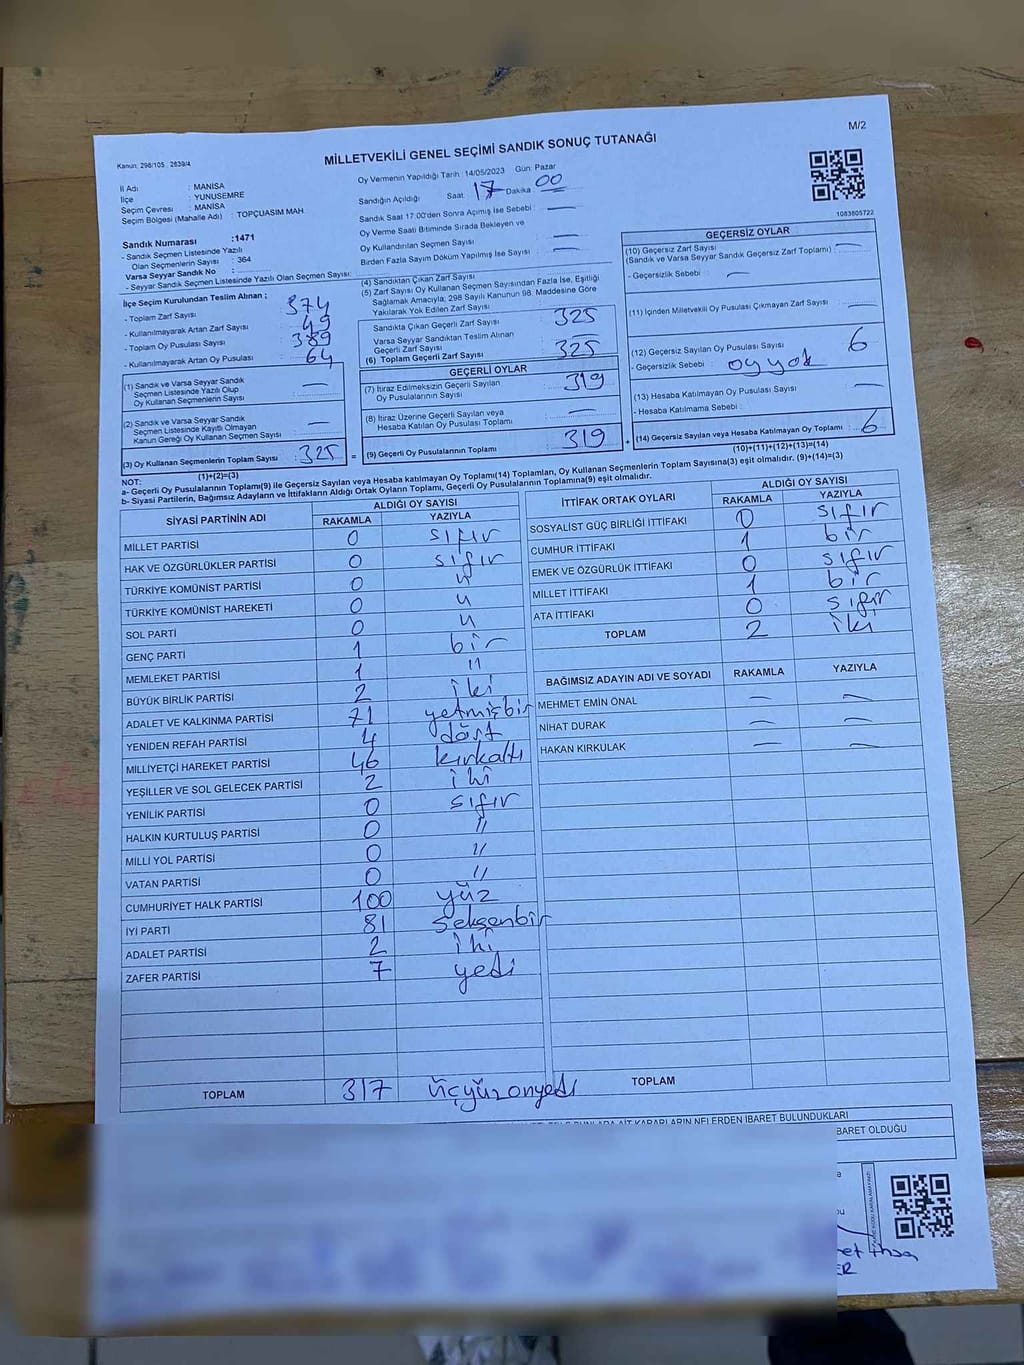 M/2
Kanun: 298/105 2839/4
MİLLETVEKİLİ GENEL SEÇİMİ SANDIK SONUÇ TUTANAĞI
1083805722
İl Adı : MANİSA
İlçe : YUNUSEMRE
Seçim Çevresi : MANİSA
Seçim Bölgesi (Mahalle Adı) : TOPÇUASIM MAH.
Sandık Numarası :1471
- Sandık Seçmen Listesinde Yazılı
Olan Seçmenlerin Sayısı : 364
Varsa Seyyar Sandık No :
- Seyyar Sandık Seçmen Listesinde Yazılı Olan Seçmen Sayısı:
İlçe Seçim Kurulundan Teslim Alınan ;
- Toplam Zarf Sayısı : 374
- Kullanılmayarak Artan Zarf Sayısı : 49
- Toplam Oy Pusulası Sayısı : 389
- Kullanılmayarak Artan Oy Pusulası : 64
(1) Sandık ve Varsa Seyyar Sandık
Seçmen Listesinde Yazılı Olup
Oy Kullanan Seçmenlerin Sayısı : —
(2) Sandık ve Varsa Seyyar Sandık
Seçmen Listesinde Kayıtlı Olmayan
Kanun Gereği Oy Kullanan Seçmen Sayısı : —
(3) Oy Kullanan Seçmenlerin Toplam Sayısı : 325 =
(1)+(2)=(3)
Oy Vermenin Yapıldığı Tarih : 14/05/2023 Gün: Pazar
Sandığın Açıldığı Saat: 17 Dakika 00
Sandık Saat 17:00'den Sonra Açılmış İse Sebebi : —
Oy Verme Saati Bitiminde Sırada Bekleyen ve
Oy Kullandırılan Seçmen Sayısı : —
Birden Fazla Sayım Döküm Yapılmış İse Sayısı : —
(4) Sandıktan Çıkan Zarf Sayısı
(5) Zarf Sayısı Oy Kullanan Seçmen Sayısından Fazla İse, Eşitliği
Sağlamak Amacıyla; 298 Sayılı Kanunun 98. Maddesine Göre
Yakılarak Yok Edilen Zarf Sayısı :
Sandıkta Çıkan Geçerli Zarf Sayısı : 325
Varsa Seyyar Sandıktan Teslim Alınan
Geçerli Zarf Sayısı :
(6) Toplam Geçerli Zarf Sayısı : 325
GEÇERLİ OYLAR
(7) İtiraz Edilmeksizin Geçerli Sayılan
Oy Pusulalarının Sayısı : 319
(8) İtiraz Üzerine Geçerli Sayılan veya
Hesaba Katılan Oy Pusulası Toplamı : —
(9) Geçerli Oy Pusulalarının Toplamı : 319 +
GEÇERSİZ OYLAR
(10) Geçersiz Zarf Sayısı
(Sandık ve Varsa Seyyar Sandık Geçersiz Zarf Toplamı) : —
- Geçersizlik Sebebi : —
(11) İçinden Milletvekili Oy Pusulası Çıkmayan Zarf Sayısı : —
(12) Geçersiz Sayılan Oy Pusulası Sayısı : 6
- Geçersizlik Sebebi : oy yok
(13) Hesaba Katılmayan Oy Pusulası Sayısı : —
- Hesaba Katılmama Sebebi :
(14) Geçersiz Sayılan veya Hesaba Katılmayan Oy Toplamı : 6
(10)+(11)+(12)+(13)=(14)
NOT:
a- Geçerli Oy Pusulalarının Toplamı(9) ile Geçersiz Sayılan veya Hesaba katılmayan Oy Toplamı(14) Toplamları, Oy Kullanan Seçmenlerin Toplam Sayısına(3) eşit olmalıdır. (9)+(14)=(3)
b- Siyasi Partilerin, Bağımsız Adayların ve İttifakların Aldığı Ortak Oyların Toplamı, Geçerli Oy Pusulalarının Toplamına(9) eşit olmalıdır.
SİYASİ PARTİNİN ADI ALDIĞI OY SAYISI
RAKAMLA YAZIYLA
MİLLET PARTİSİ 0 sıfır
HAK VE ÖZGÜRLÜKLER PARTİSİ 0 sıfır
TÜRKİYE KOMÜNİST PARTİSİ 0 "
TÜRKİYE KOMÜNİST HAREKETİ 0 "
SOL PARTİ 0 "
GENÇ PARTİ 1 bir
MEMLEKET PARTİSİ 1 "
BÜYÜK BİRLİK PARTİSİ 2 iki
ADALET VE KALKINMA PARTİSİ 71 yetmişbir
YENİDEN REFAH PARTİSİ 4 dört
MİLLİYETÇİ HAREKET PARTİSİ 46 kırkaltı
YEŞİLLER VE SOL GELECEK PARTİSİ 2 iki
YENİLİK PARTİSİ 0 sıfır
HALKIN KURTULUŞ PARTİSİ 0 "
MİLLİ YOL PARTİSİ 0 "
VATAN PARTİSİ 0 "
CUMHURİYET HALK PARTİSİ 100 yüz
İYİ PARTİ 81 seksenbir
ADALET PARTİSİ 2 iki
ZAFER PARTİSİ 7 yedi
TOPLAM 317 üçyüzonyedi
İTTİFAK ORTAK OYLARI ALDIĞI OY SAYISI
RAKAMLA YAZIYLA
SOSYALİST GÜÇ BİRLİĞİ İTTİFAKI 0 sıfır
CUMHUR İTTİFAKI 1 bir
EMEK VE ÖZGÜRLÜK İTTİFAKI 0 sıfır
MİLLET İTTİFAKI 1 bir
ATA İTTİFAKI 0 sıfır
TOPLAM 2 iki
BAĞIMSIZ ADAYIN ADI VE SOYADI RAKAMLA YAZIYLA
MEHMET EMİN ÖNAL — —
NİHAT DURAK — —
HAKAN KIRKULAK — —
TOPLAM
KARARLARIN NELERDEN İBARET BULUNDUKLARI
BARET OLDUĞU